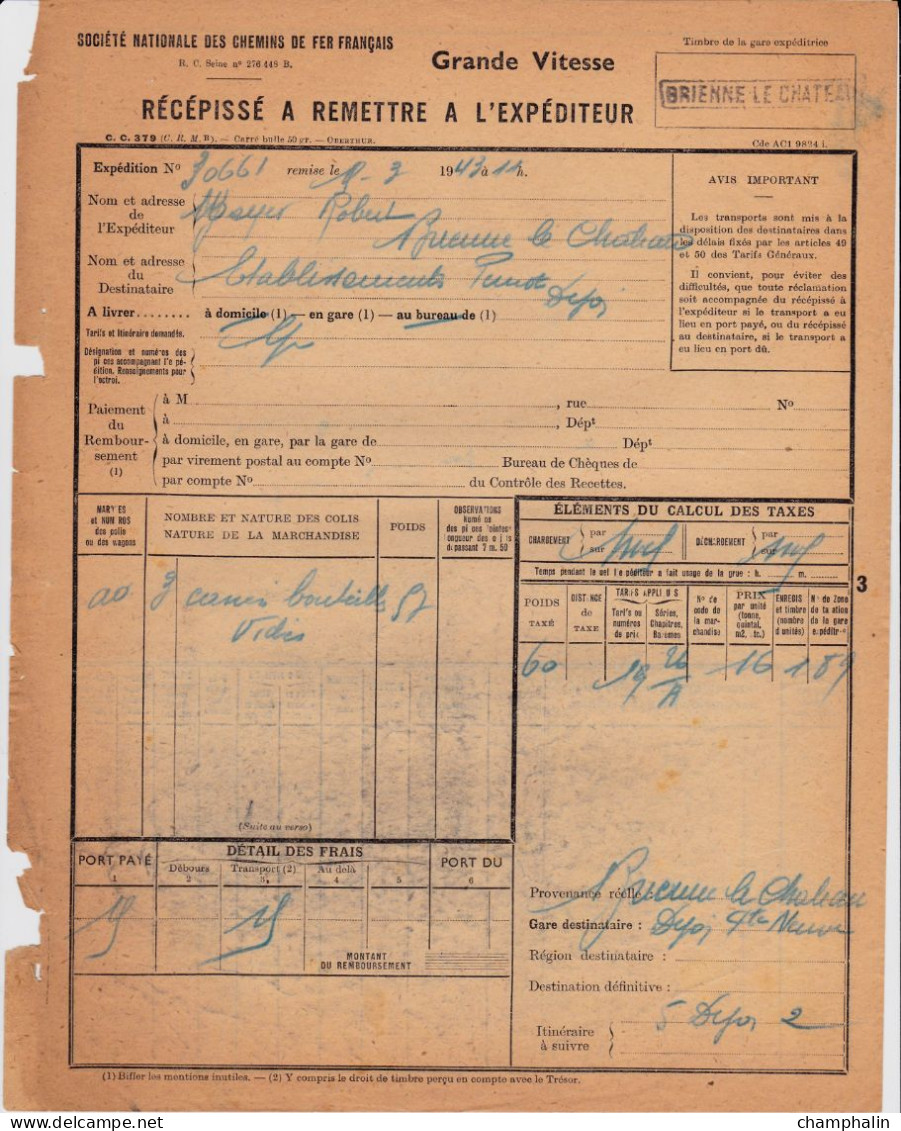 SOCIÉTÉ NATIONALE DES CHEMINS DE FER FRANÇAIS
R. C. Seine nº 276.448 B.
Grande Vitesse
Timbre de la gare expéditrice
BRIENNE LE CHATEAU
RÉCÉPISSÉ A REMETTRE A L'EXPÉDITEUR
C. C. 379 (C. R. M. B). — Carré bulle 50 gr. — OBERTHUR.
Cde AC1 9824 i.
Expédition Nº 30661 remise le 3 1943 à 14 h.
Nom et adresse de l'Expéditeur
Robert
Brienne le Chateau
Nom et adresse du Destinataire
Etablissements
A livrer........ à domicile (1) — en gare (1) — au bureau de (1)
Tarifs et Itinéraire demandés.
Désignation et numéros des
pièces accompagnant l'expé
dition. Renseignements pour
l'octroi.
AVIS IMPORTANT
Les transports sont mis à la
disposition des destinataires dans
les délais fixés par les articles 49
et 50 des Tarifs Généraux.
Il convient, pour éviter des
difficultés, que toute réclamation
soit accompagnée du récépissé à
l'expéditeur si le transport a eu
lieu en port payé, ou du récépissé
au destinataire, si le transport a
eu lieu en port dû.
Paiement du Rembour-sement (1)
à M , rue Nº
à , Dépt
à domicile, en gare, par la gare de Dépt
par virement postal au compte Nº Bureau de Chèques de
par compte Nº du Contrôle des Recettes.
MARQUES et NUMÉROS des colis ou des wagons
NOMBRE ET NATURE DES COLIS
NATURE DE LA MARCHANDISE
POIDS
OBSERVATIONS
3 bouteilles 57
vides
(Suite au verso)
ÉLÉMENTS DU CALCUL DES TAXES
CHARGEMENT par sur
DÉCHARGEMENT par sur
Temps pendant lequel l'expéditeur a fait usage de la grue : h. m.
3
POIDS TAXÉ
DISTANCE de TAXE
TARIFS APPLIQUÉS
Tarifs ou numéros de prix
Séries, Chapitres, Barèmes
Nº de code de la mar-chandise
PRIX par unité (tonne, quintal, m2, etc.)
ENREGIS et timbre (nombre d'unités)
Nº de Zone de taxation de la gare expéditr-e
60 19 26 16 1 89
PORT PAYÉ
1
DÉTAIL DES FRAIS
Débours
2
Transport (2)
3
Au delà
4
5
PORT DU
6
MONTANT
DU REMBOURSEMENT
Provenance réelle : Brienne le Chateau
Gare destinataire : Neuve
Région destinataire :
Destination définitive :
Itinéraire à suivre
5 2
(1) Biffer les mentions inutiles. — (2) Y compris le droit de timbre perçu en compte avec le Trésor.
champhalin